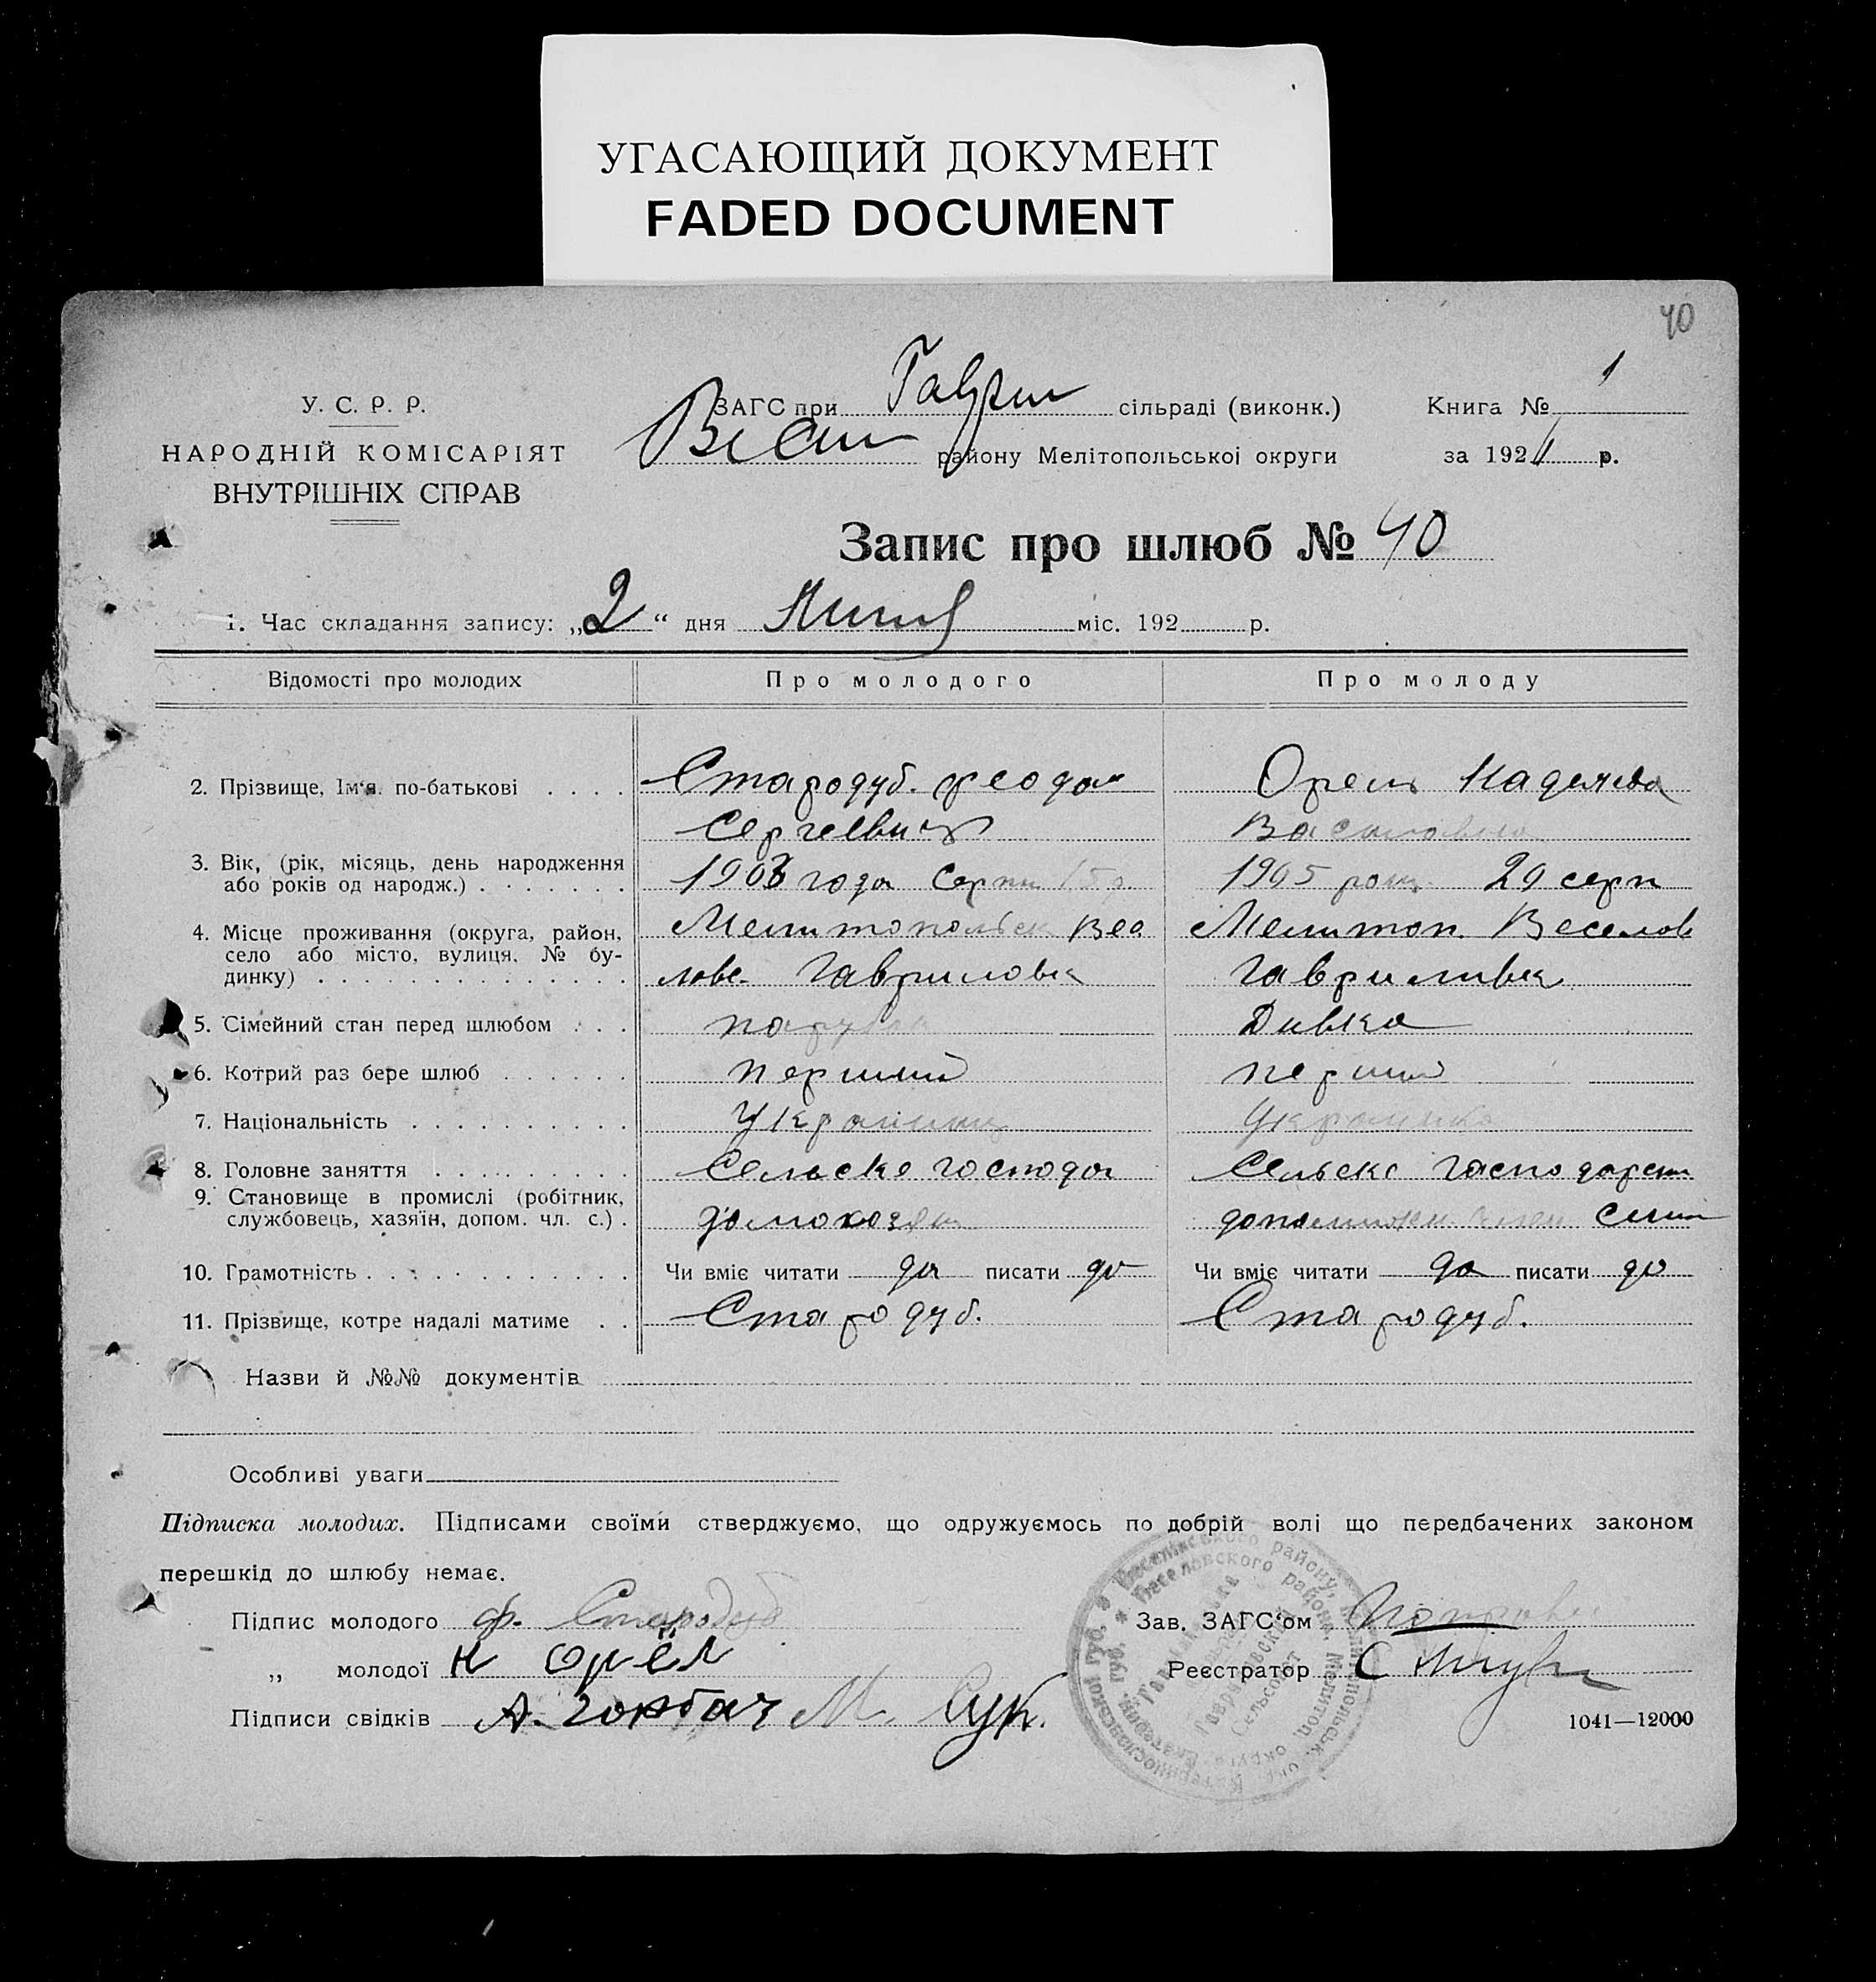 УГАСАЮЩИЙ ДОКУМЕНТ
FADED DOCUMENT
40
У. С. Р. Р.
НАРОДНІЙ КОМІСАРІЯТ
ВНУТРІШНІХ СПРАВ
ЗАГС при Гаврил сільраді (виконк.)
району Мелітопольської округи
Книга № 1
за 192 р.
Запис про шлюб № 40
1. Час складання запису: „2“ дня міс. 192 р.
Відомості про молодих Про молодого Про молоду
2. Прізвище, Ім'я. по-батькові Стародуб. Феодос Орел Надежда
Сергеевич Василовна
3. Вік, (рік, місяць, день народження
або років од народж.) года Серпн 15 1905 року 29 серп
4. Місце проживання (округа, район,
село або місто, вулиця, № будинку) Мелитопольск Весловс. Гавриловка Мелитоп. Веселов Гавриливка
5. Сімейний стан перед шлюбом парубок Дивка
6. Котрий раз бере шлюб перший перший
7. Національність Украинец Украинка
8. Головне заняття Сельске господа Сельске господарст
9. Становище в промислі (робітник,
службовець, хазяїн, допом. чл. с.) домохозяин член
10. Грамотність Чи вміє читати да писати да Чи вміє читати да писати да
11. Прізвище, котре надалі матиме Стародуб. Стародуб.
Назви й №№ документів
Особливі уваги
Підписка молодих. Підписами своїми стверджуємо, що одружуємось по добрій волі що передбачених законом
перешкід до шлюбу немає.
Підпис молодого Ф. Стародуб
„ молодої Н Орёл
Підписи свідків А. Горбач М.
Зав. ЗАГС'ом
Реєстратор С
1041—12000